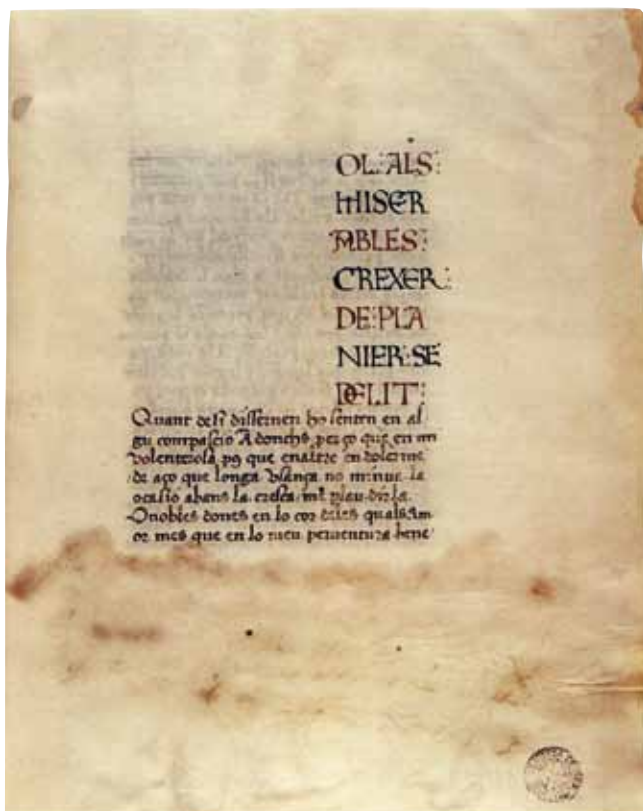 OL:ALS:
MISER
ABLES:
CREXER:
DE:PLA
NIER:SE
DELIT:
Quant de si dissernen ho senten en al
gu compascio Adonchs perço que en mi
volenterosa pus que en altre en dolerme
de aço que longa vsança no minue la
ocasio abans la cresca mi plau dir la
O nobles dones en lo cor deles quals am
or mes que en lo meu perventura bene